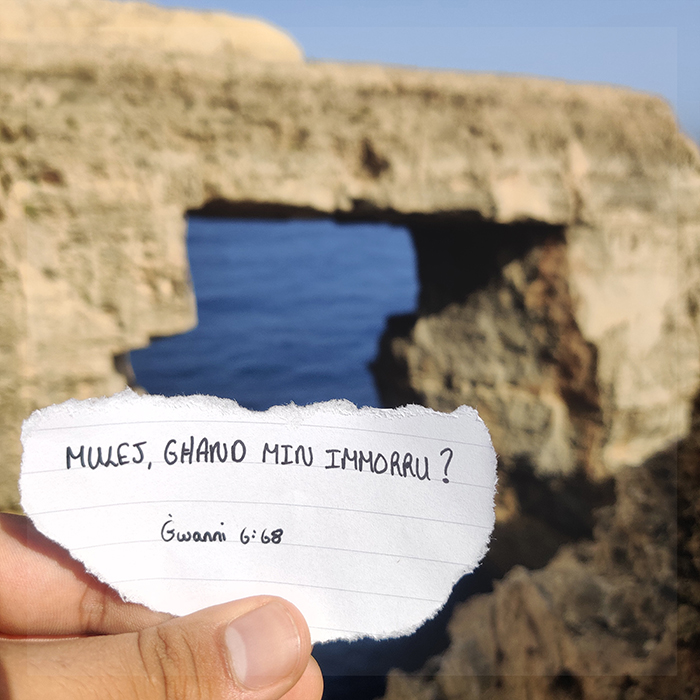 MULEJ, GĦAND MIN IMMORRU?
Ġwanni 6:68